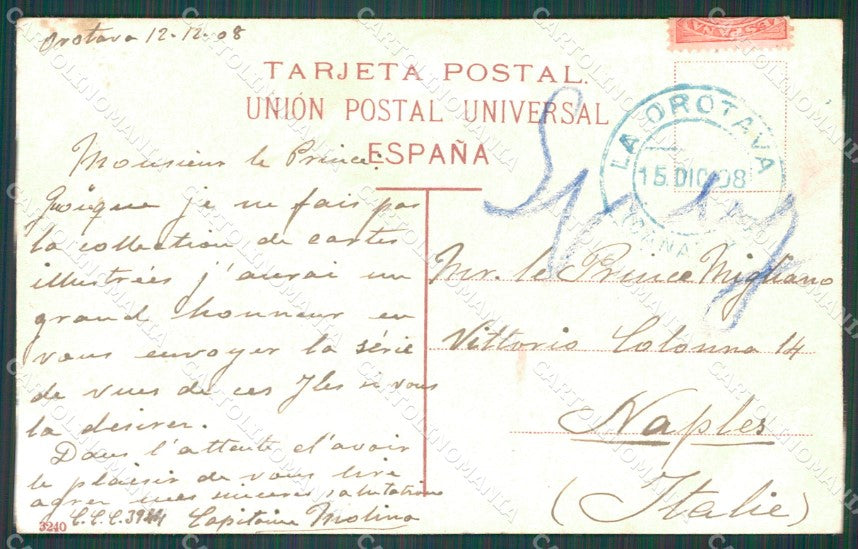 Orotava 12-12-08
TARJETA POSTAL.
UNIÓN POSTAL UNIVERSAL
ESPAÑA
LA OROTAVA
15.DIC.08
Monsieur le Prince.
Quoique je ne fais pas
la collection de cartes
illustrées j'aurai un
grand honneur en
vous envoyer la série
de vues de ces Iles si vous
la desirer.
Dans l'attente d'avoir
le plaisir de vous lire
agrer mes sinceres salutations
C.C.C. Capitaine Molina
3240
Mr. le Prince Migliano
Vittorio Colonna 14
Naples
(Italie)
CARTOLINOMANIA